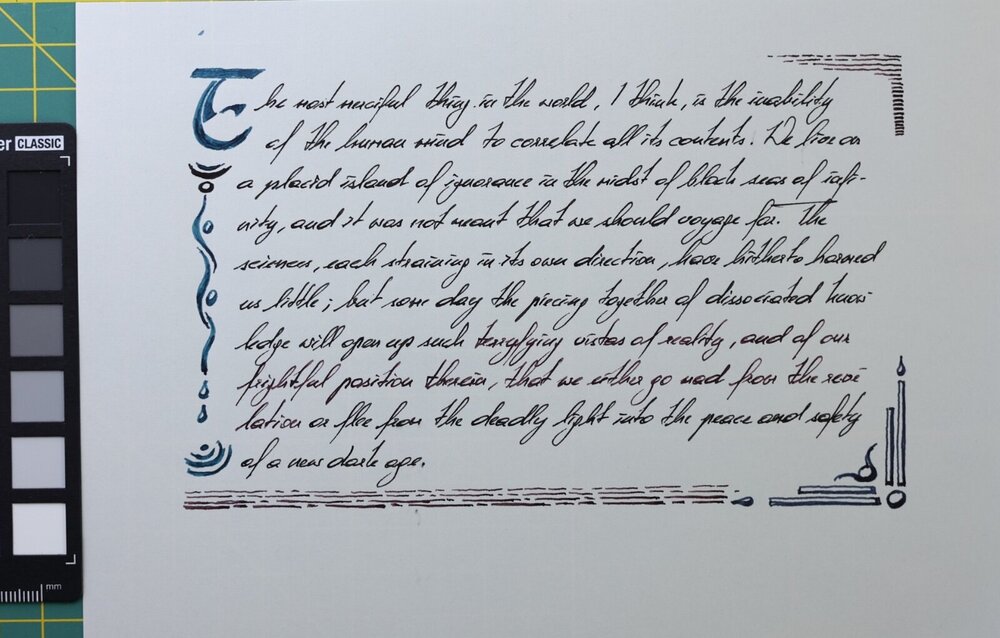 er CLASSIC
The most merciful thing in the world, I think, is the inability
of the human mind to correlate all its contents. We live on
a placid island of ignorance in the midst of black seas of infi-
nity, and it was not meant that we should voyage far. The
sciences, each straining in its own direction, have hitherto harmed
us little; but some day the piecing together of dissociated know
ledge will open up such terryfying vistas of reality, and of our
frightful position therein, that we either go mad from the reve
lation or flee from the deadly light into the peace and safety
of a new dark age.
mm